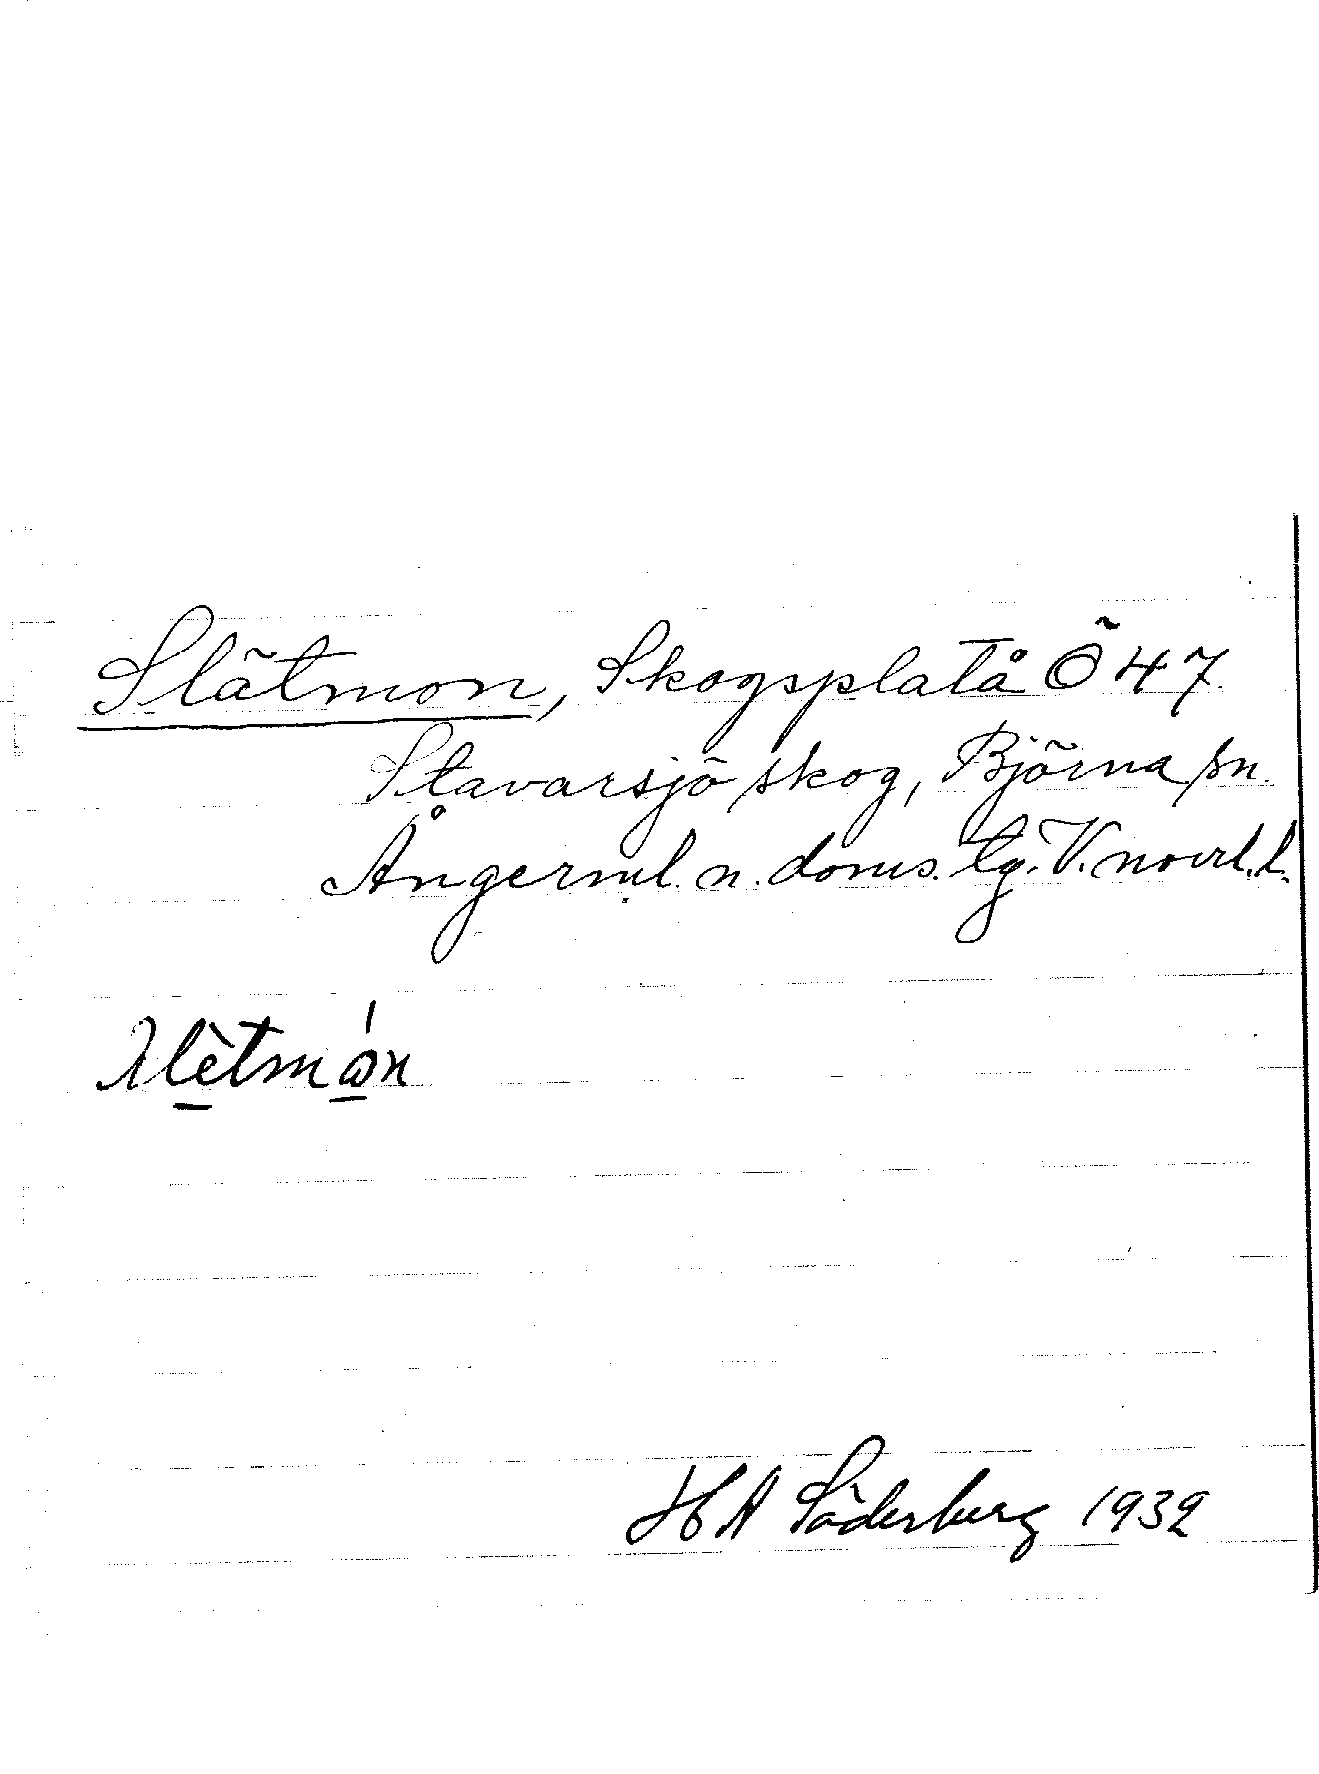 Slätmon, Skogsplatå Ö 47
Stavarsjö skog, Björna sn.
Ångerml. n. doms. tg. V. norrl. l.
slètmón
H A Söderberg 1932